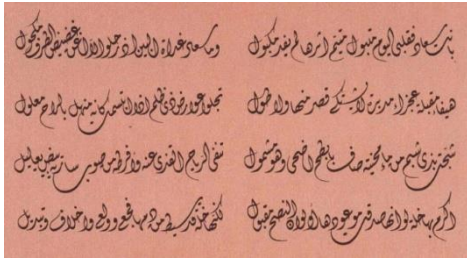 بانت سعاد فقلبي اليوم متبول متيم اثرها لم يفد مكبول وما سعاد غداة البين اذ رحلوا الا اغن غضيض الطرف مكحول
هيفاء مقبلة عجزاء مدبرة لا يشتكى قصر منها ولا طول تجلو عوارض ذي ظلم اذا ابتسمت كأنه منهل بالراح معلول
شجت بذي شبم من ماء محنية صاف بابطح اضحى وهو مشمول تنفي الرياح القذى عنه وافرطه من صوب سارية بيض يعاليل
اكرم بها خلة لو انها صدقت موعودها او لو ان النصح مقبول لكنها خلة قد سيط من دمها فجع وولع واخلاف وتبديل